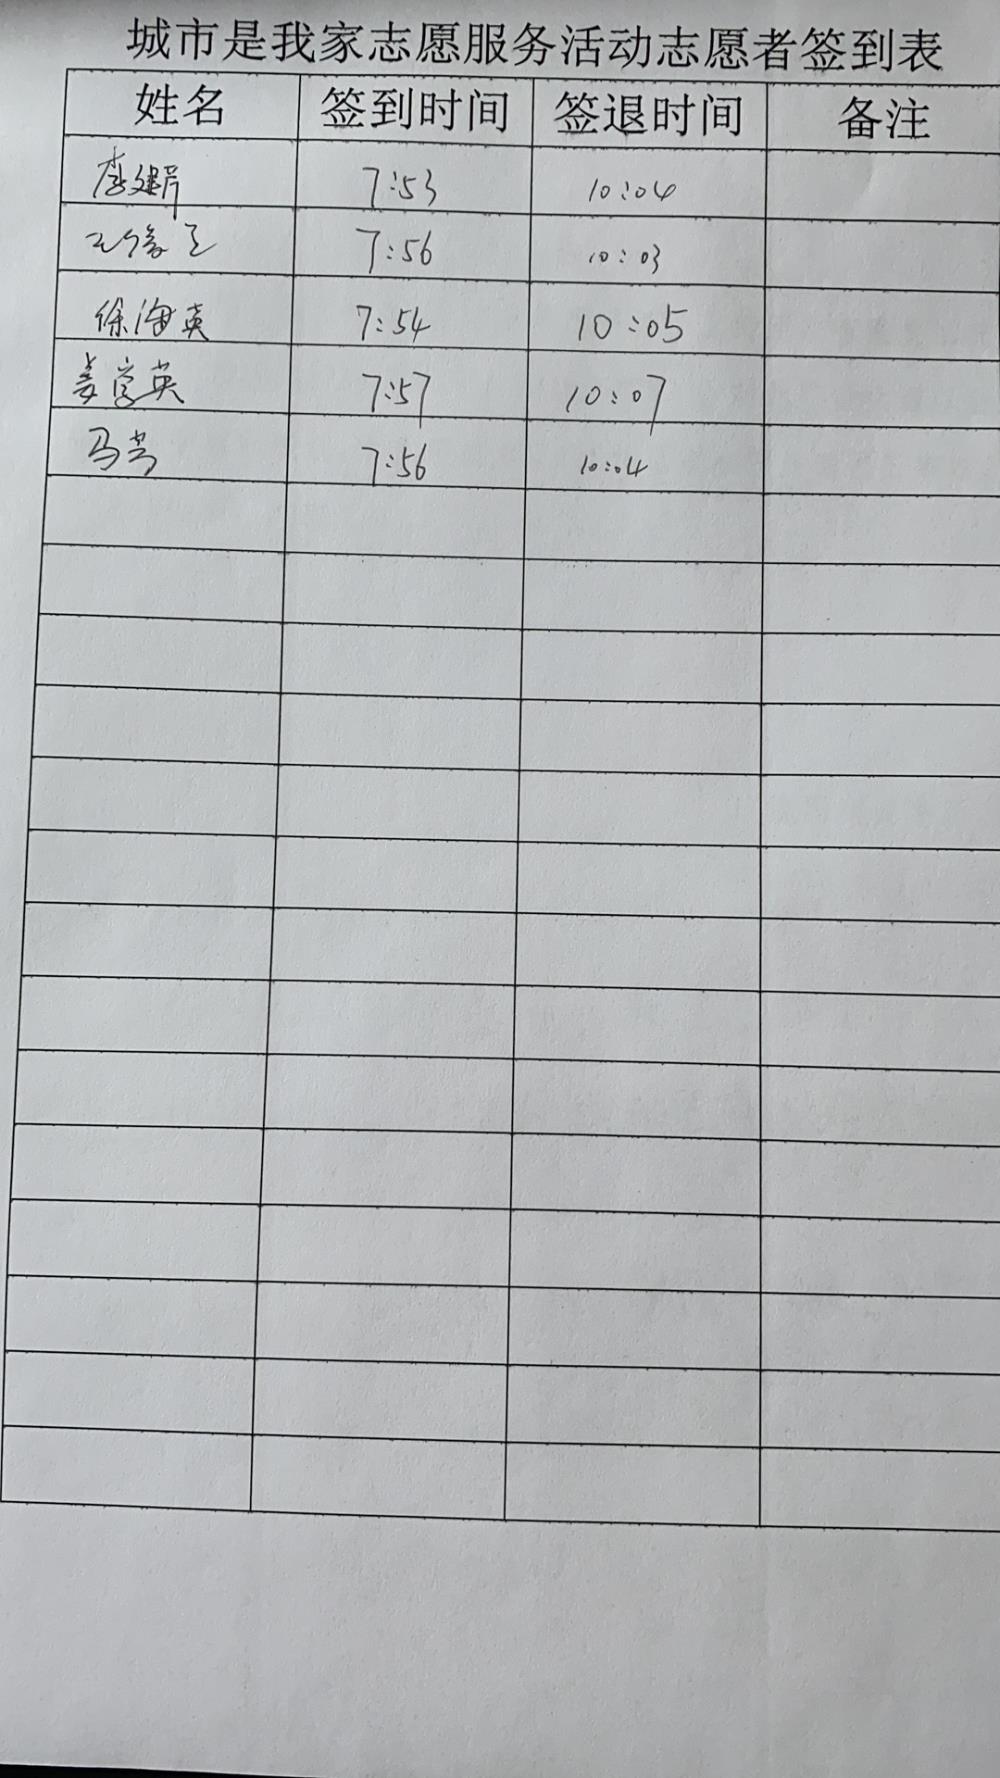 城市是我家志愿服务活动志愿者签到表
姓名 签到时间 签退时间 备注
7:53 10:04
7:56 10:03
徐海英 7:54 10:05
姜学英 7:57 10:07
马芳 7:56 10:04